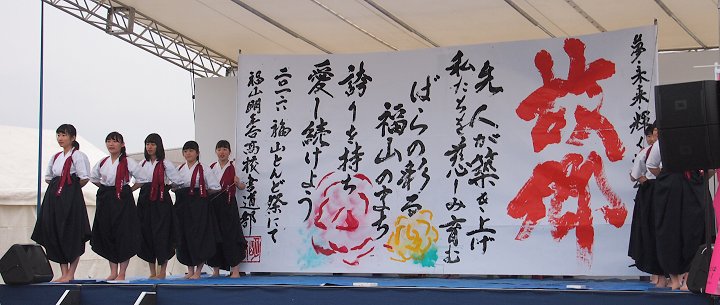 夢・未来輝く
故郷
先人が築き上げ
私たちを慈しみ育む
ばらの彩る
福山のまち
誇りを持ち
愛し続けよう
二〇一六 福山とんど祭にて
福山明王台高校書道部